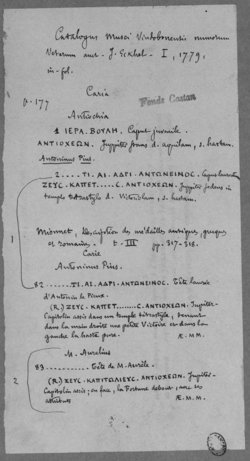 Catalogus Musei Vindobonensis numorum
Veterum auct. J. Eckhel - I, 1779.
in-fol.
Caria
p. 177
Fonds Caston
Antiochia
1 ΙΕΡΑ. ΒΟΥΛΗ, Caput juvenile.
ΑΝΤΙΟΧΕΩΝ. Juppiter stans d. aquilam, s. hastam.
Antoninus Pius.
2.....ΤΙ. ΑΙ. ΑΔΡΙ. ΑΝΤΩΝΕΙΝΟΣ. Caput laureatum
ΖΕΥΣ. ΚΑΠΕΤ.....Σ. ΑΝΤΙΟΧΕΩΝ. Juppiter sedens in
templo tetrastylo d. Victoriolam, s. hastam.
1
Mionnet, Description des médailles antiques, grecques
et romaines. t. III pp. 317-318.
Carie
Antoninus Pius.
82 .....ΤΙ. ΑΙ. ΑΔΡΙ. ΑΝΤΩΝΕΙΝΟΣ. Tête laurée
d'Antonin le Pieux.
(R.) ΖΕΥΣ. ΚΑΠΕΤ.....Σ. ΑΝΤΙΟΧΕΩΝ. Jupiter-
Capitolin assis dans un temple tétrastyle, tenant
dans la main droite une petite Victoire et dans la
gauche la haste pure. Æ. M.M.
M. Aurelius
83 ........ Tête de M. Aurèle.
2
(R.) ΖΕΥΣ. ΚΑΠΙΤΩΛΙΕΥΣ. ΑΝΤΙΟΧΕΩΝ. Jupiter-
Capitolin assis; en face, la Fortune debout, avec ses
attributs Æ. M.M.